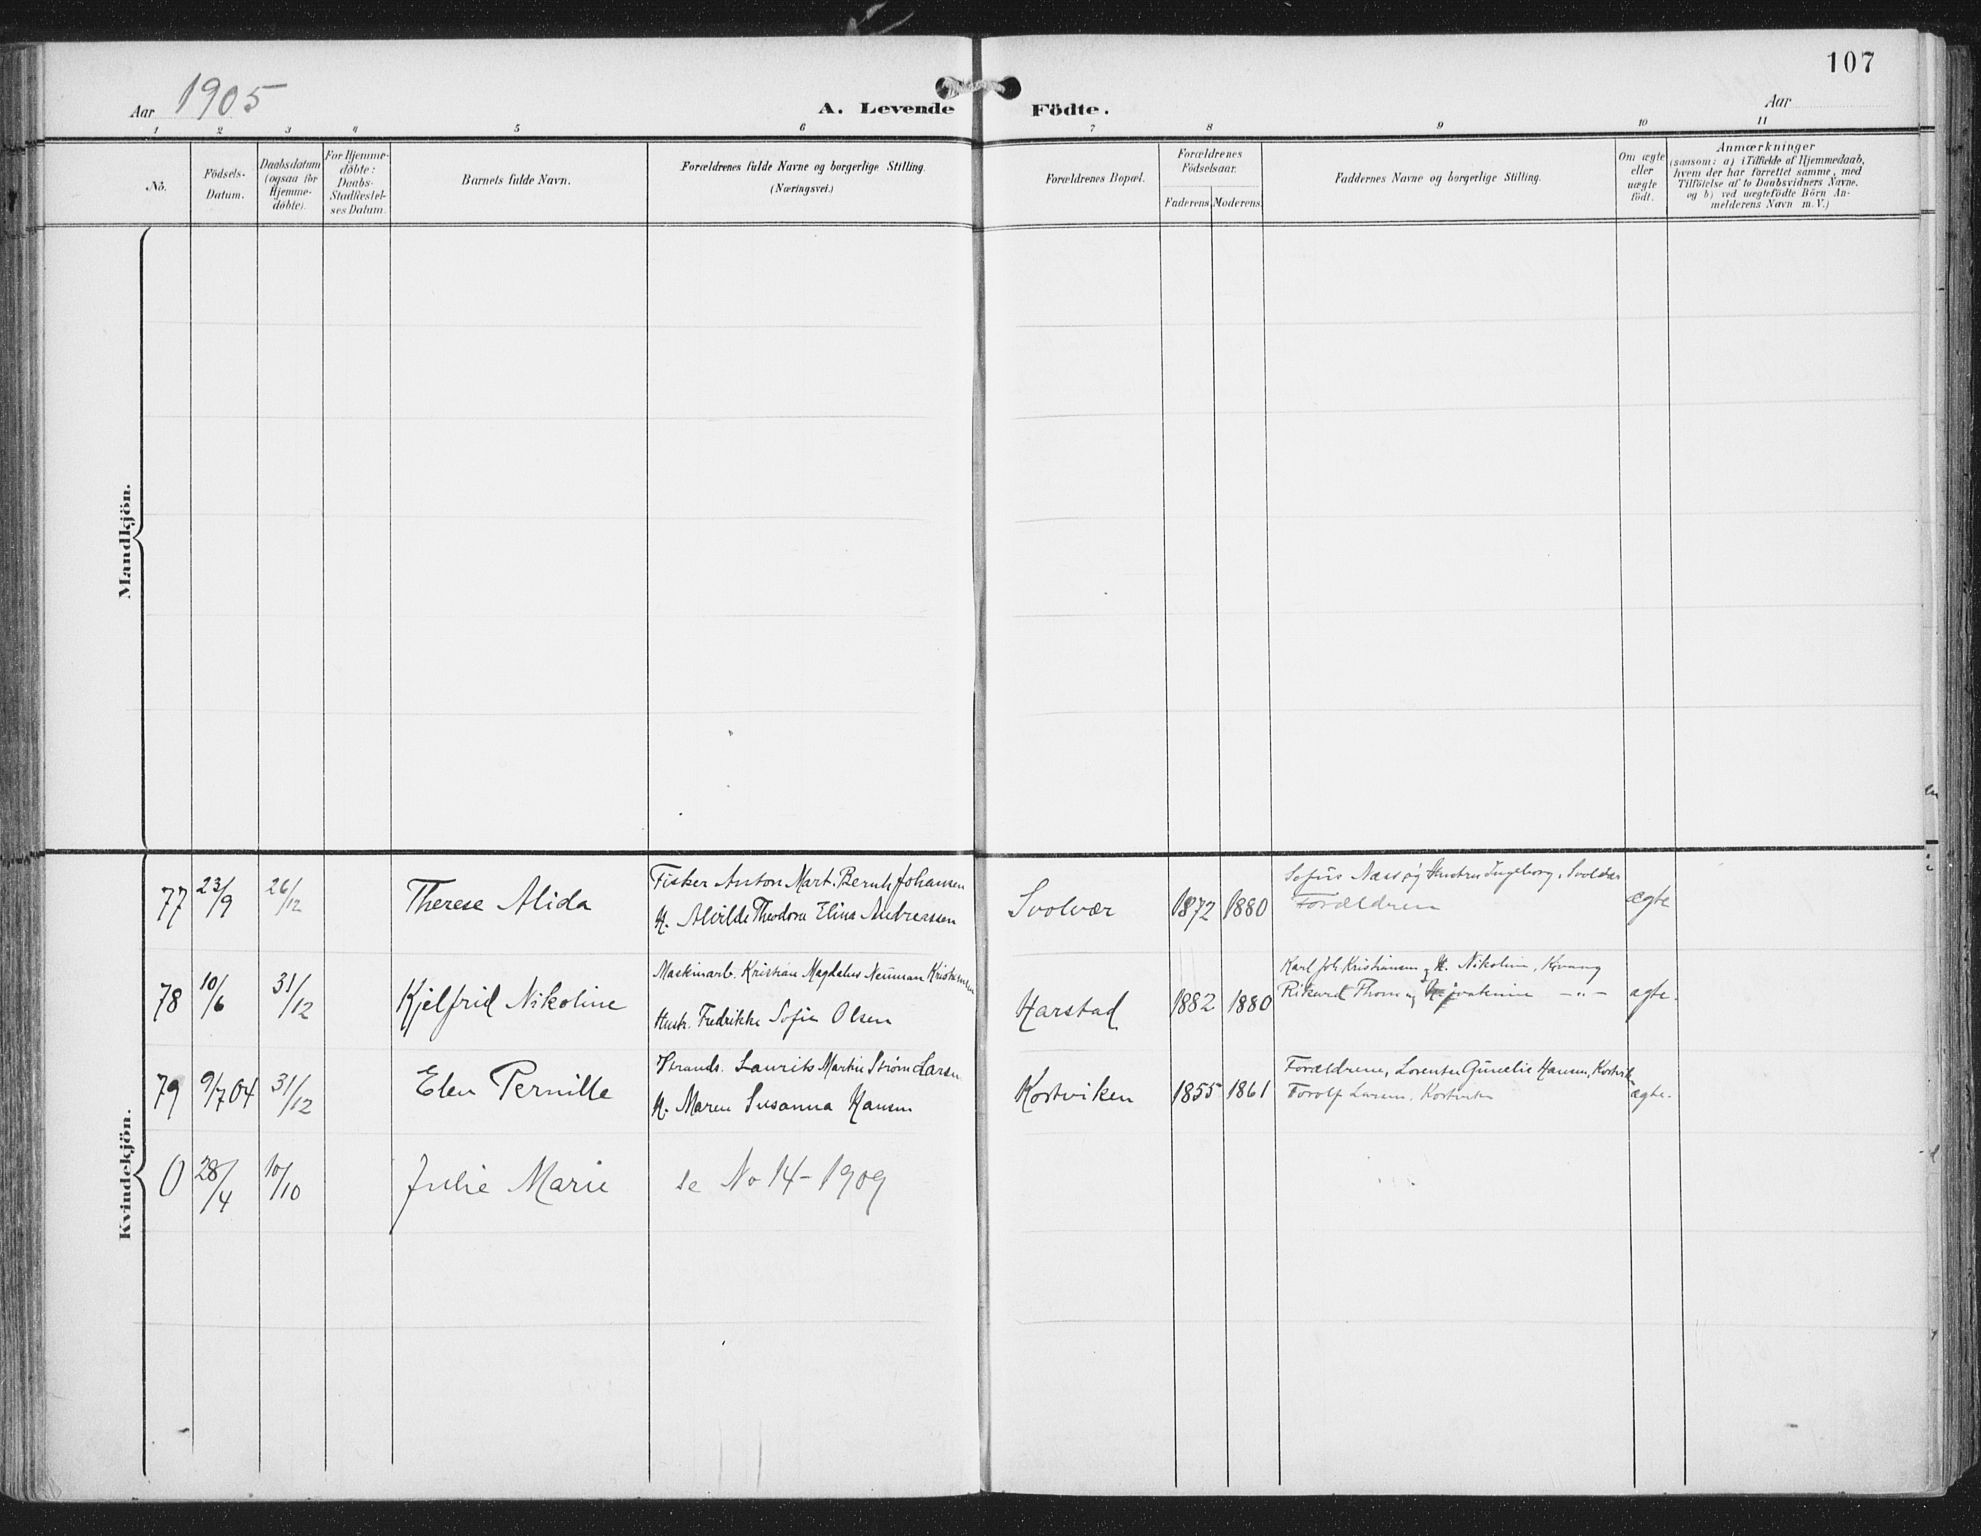 107
Aar 1905
A. Levende Födte.
Aar
1 2 3 4 5 6 7 8 9 10 11
No.
Födsels-
Datum.
Daabsdatum
(ogsaa for
Hjemme-
døbte).
For Hjemme-
døbte:
Daabs-
Stadfæstel-
ses Datum.
Barnets fulde Navn.
Forældrenes fulde Navne og borgerlige Stilling.
(Næringsvei.)
Forældrenes Bopæl.
Forældrenes
Födselsaar.
Faderens. Moderens.
Faddernes Navne og borgerlige Stilling.
Om ægte
eller
uægte
født.
Anmærkninger
(saasom: a) i Tilfælde af Hjemmedaab,
hvem der har forrettet samme, med
Tilføielse af to Daabsvidners Navne.
og b) ved uægtefödte Börn An-
melderens Navn m. V.)
Mandkjön.
Kvindekjön.
77 23/9 26/12 Therese Alida
Fisker Anton Mart. Bernh Johansen
H. Alvilde Theodora Elina Andreassen
Svolvær 1872 1880
Sofus Næss og Hustru Ingeborg, Svolvær
Forældrene
ægte
78 10/6 31/12 Kjelfrid Nikoline
Maskinarb. Kristian Magdalus Neuman Kristiansen
Hustr. Fredrikke Sofie Olsen
Harstad 1882 1880
Karl Joh Kristiansen og H. Nikoline, Kvang
Rikard Thom og Joakime — " —
ægte.
79 9/7 04 31/12 Elen Pernille
Strands. Laurits Martin Strøm Larsen
H. Maren Susanna Hansen
Kostviken 1855 1861
Forældrene, Lorents Hansen, Kostviken
Torolf Larsen, Kostviken
ægte.
0 28/4 10/10 Julie Marie se No 14 - 1909